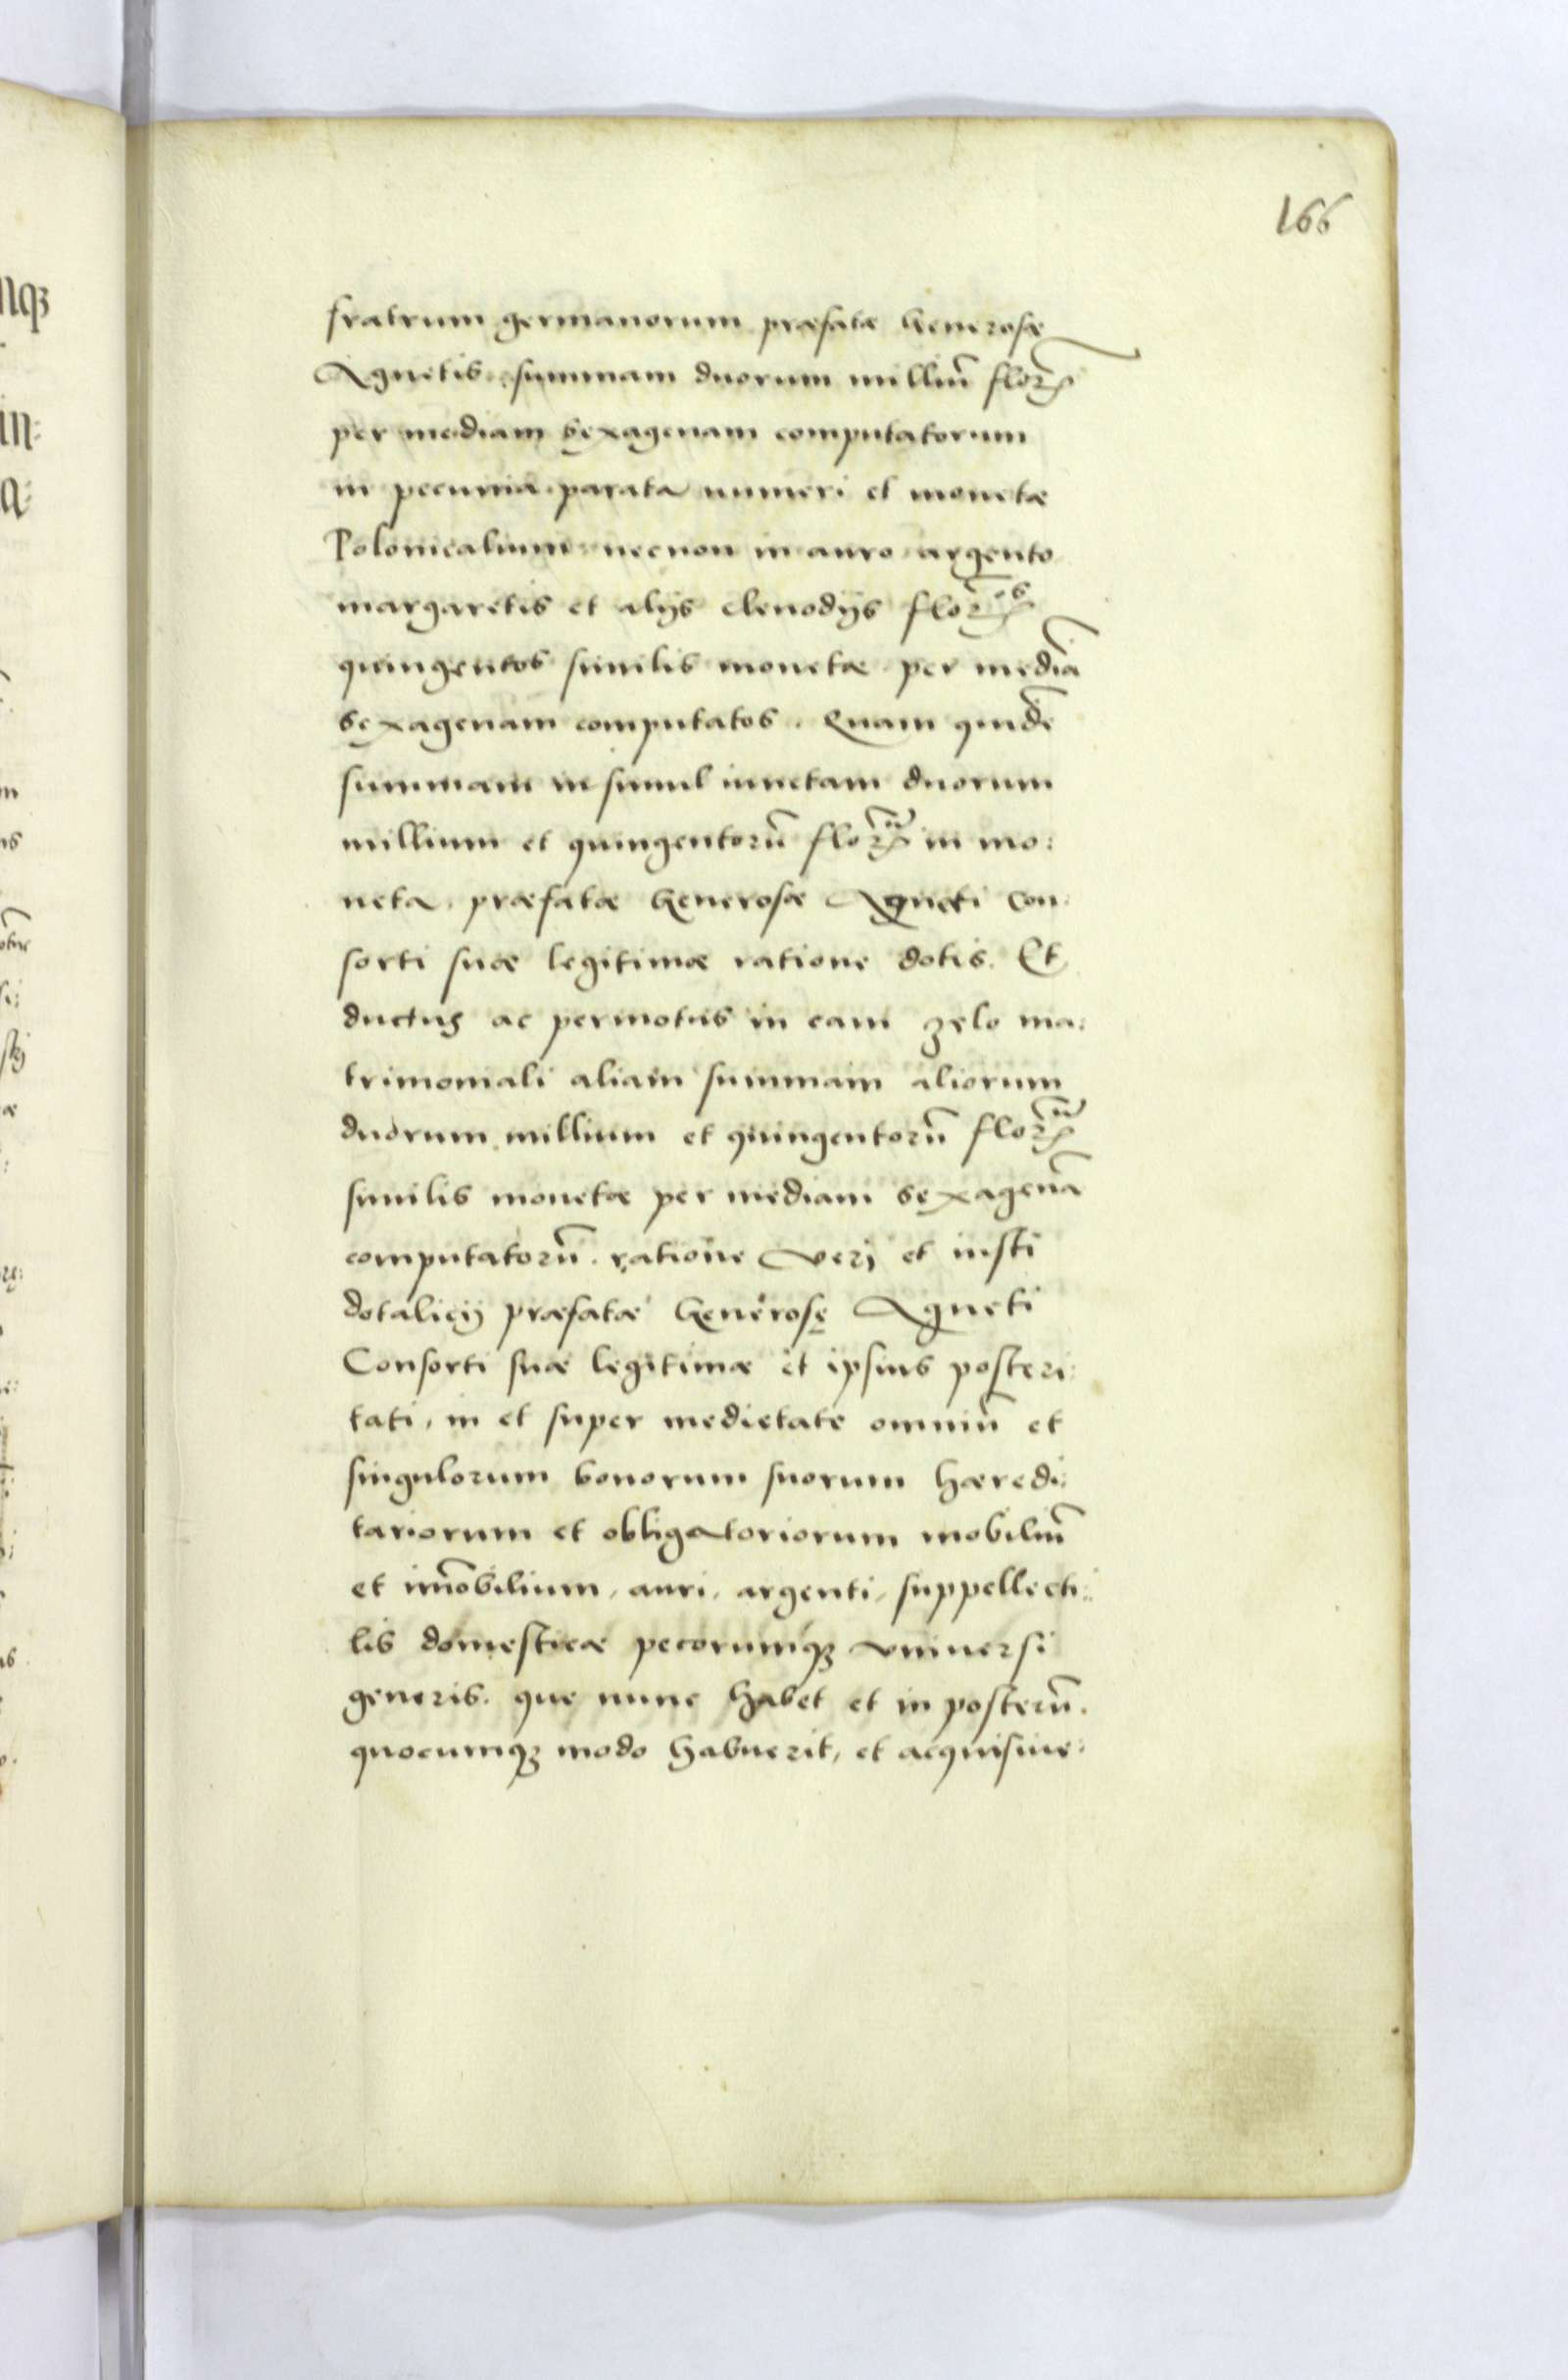 166
fratrum germanorum præfatæ Generosæ
Agnetis summam duorum milliū florꝝ
per mediam sexagenam computatorum
in pecunia parata numeri et monetæ
Polonicalium necnon in auro argento
margaretis et alijs clenodijs florꝫ^os
quingentos similis monetæ per mediā
sexagenam computatos. Quam quidē
summam in simul iunctam duorum
millium et quingentorū florꝝ in mo:
neta præfatæ Generosæ Agneti Con:
sorti suæ legitimæ ratione dotis. Et
ductus ac permotus in eam zelo ma:
trimoniali aliam summam aliorum
duorum millium et quingentorū florꝝ
similis monetæ per mediam sexagenā
computatorū ratione veri et iusti
dotalicij præfatæ Generosę Agneti
Consorti suæ legitimæ et ipsius posteri:
tati, in et super medietate omniū et
singulorum bonorum suorum hæredi:
tariorum et obligatoriorum mobiliū
et im̄obilium, auri, argenti, suppellecti:
lis domesticæ pecorumqꝫ vniuersi
generis. que nunc habet et in posterū.
quocumqꝫ modo habuerit, et acquisiue: